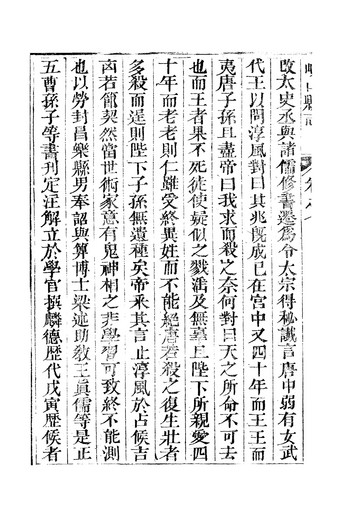 岐山縣志 卷之七
改太史丞與諸儒修書遷爲令太宗得秘讖言唐中弱有女武
代王以問淳風對曰其兆旣成已在宮中又四十年而王王而
夷唐子孫且盡帝曰我求而殺之奈何對曰天之所命不可去
也而王者果不死徒使疑似之戮濫及無辜且陛下所親愛四
十年而老老則仁雖受終異姓而不能絕唐若殺之復生壯者
多殺而逞則陛下子孫無遺種矣帝采其言止淳風於占候吉
凶若節契然當世術家意有鬼神相之非學習可致終不能測
也以勞封昌樂縣男奉詔與算博士梁述助敎王眞儒等是正
五曹孫子等書刊定注解立於學官撰麟德歷代戊寅歷候者